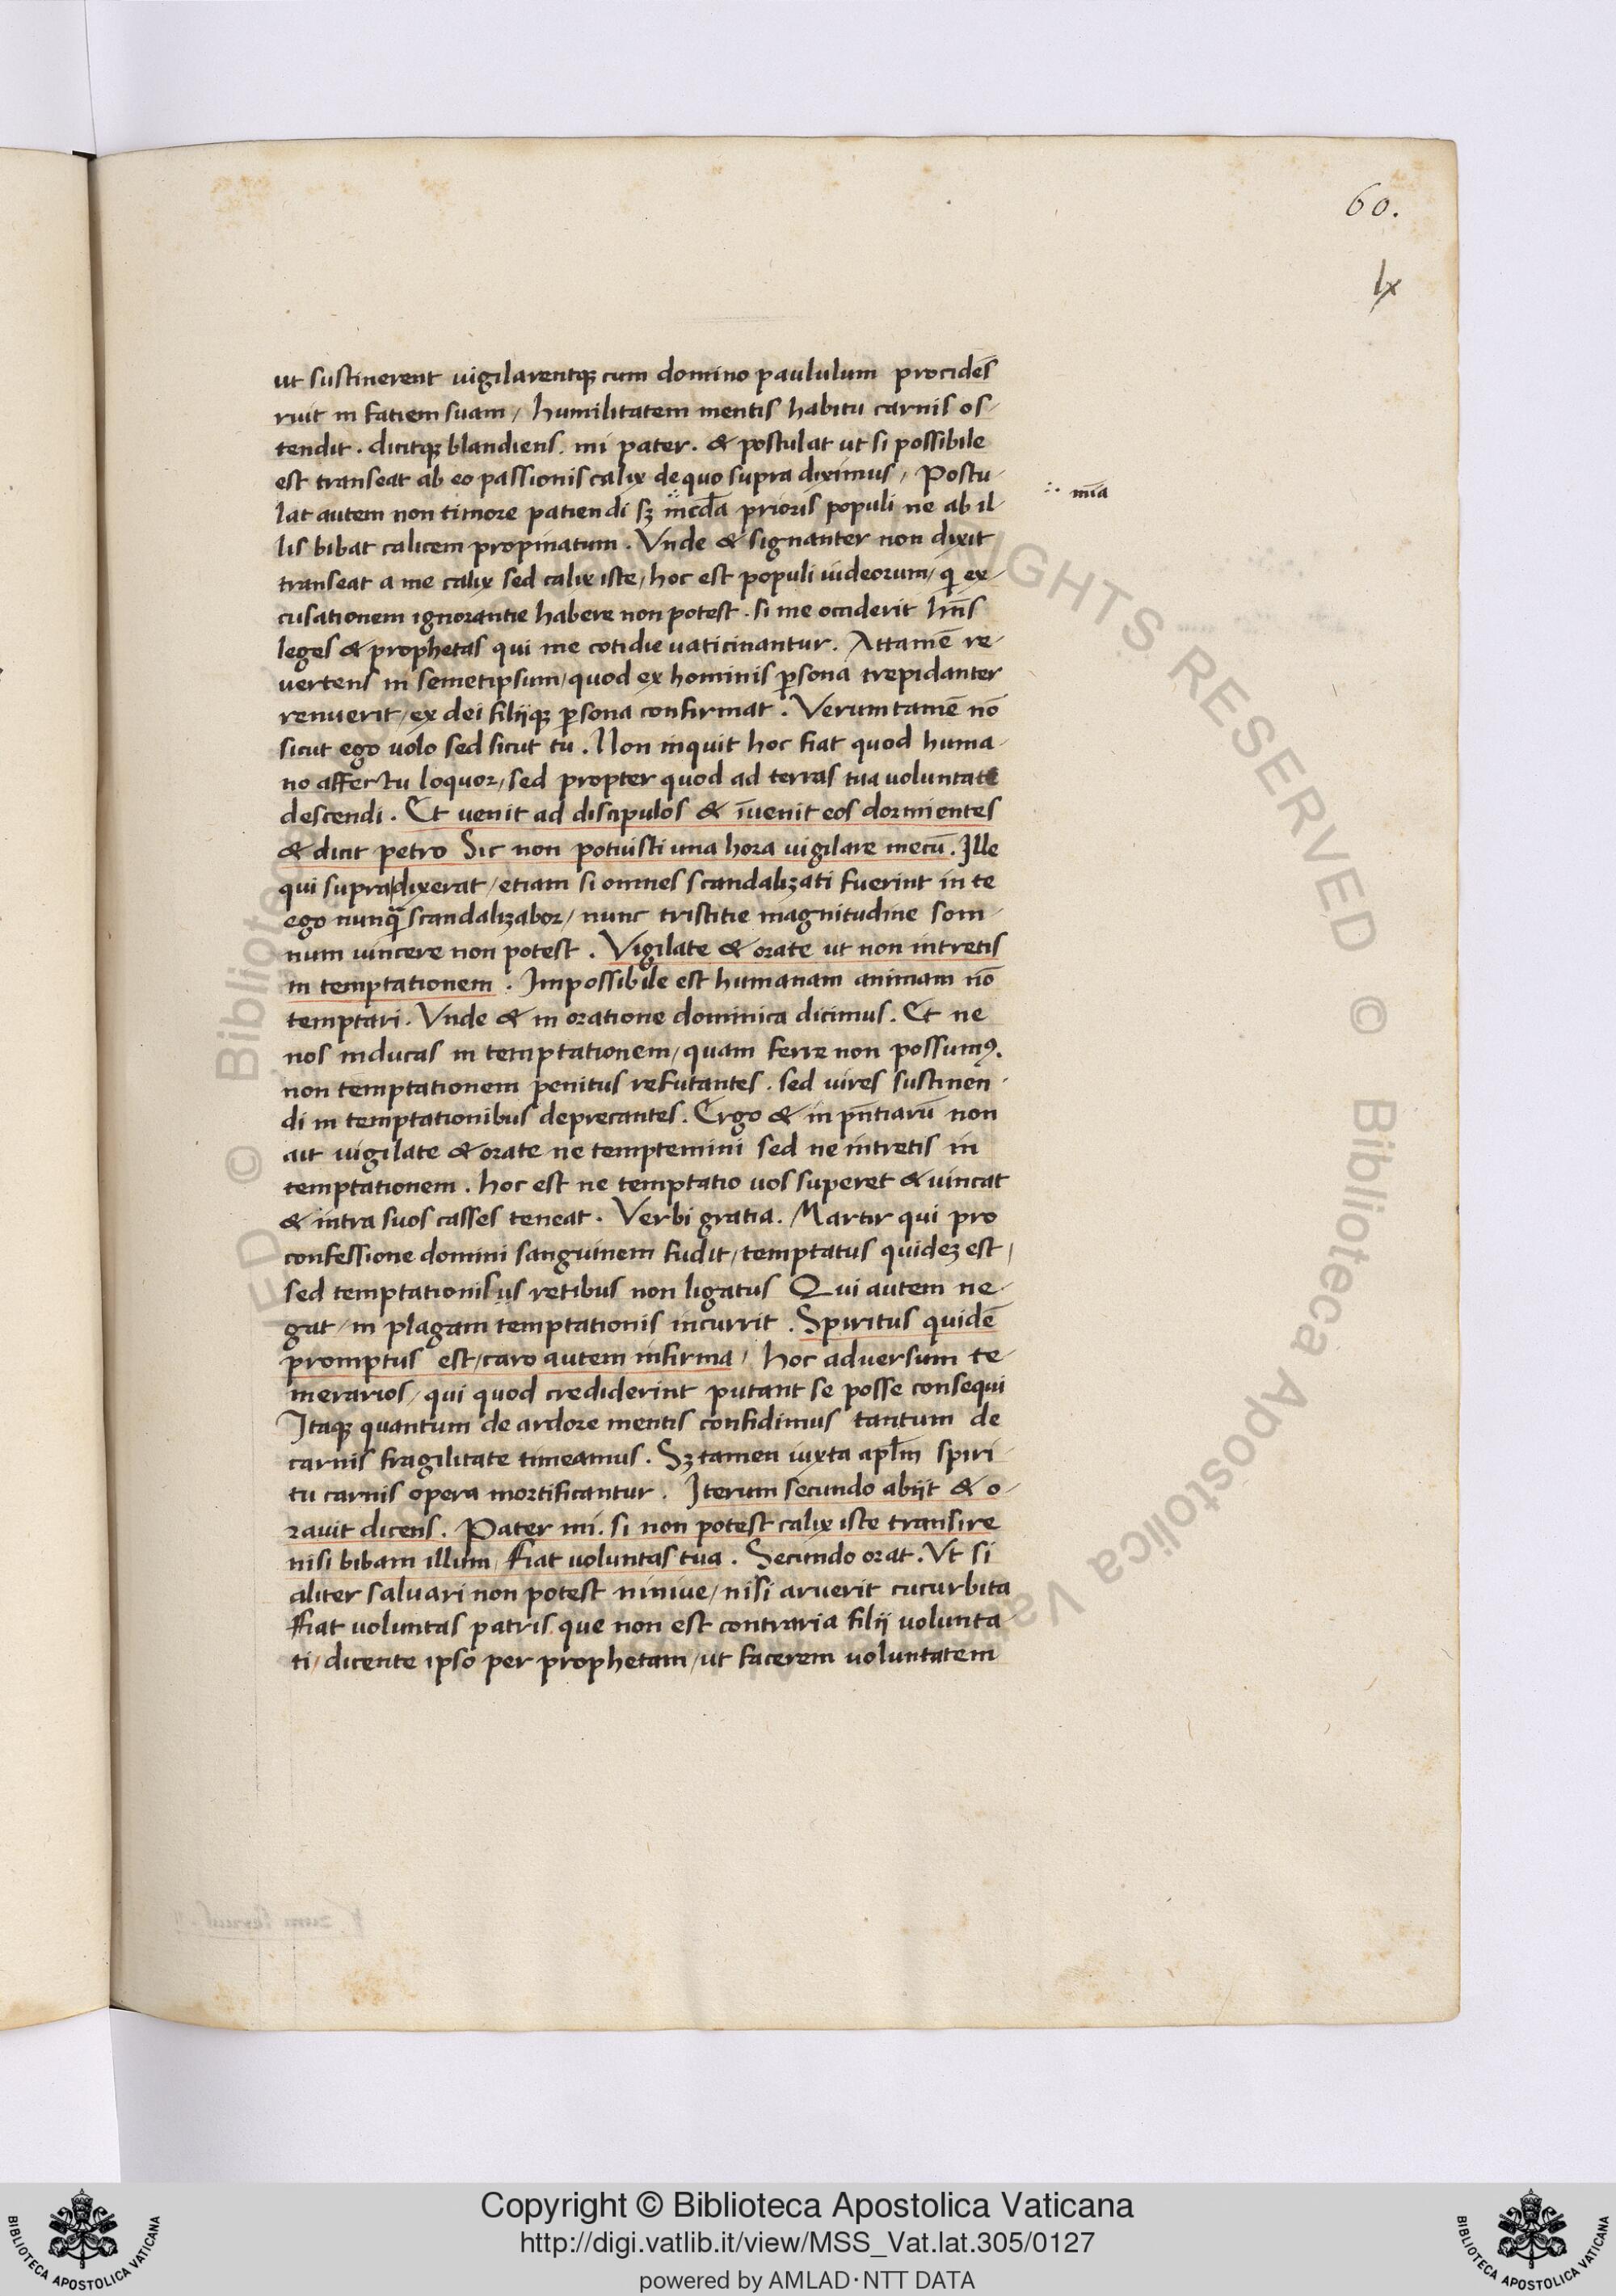 60.
lx
ut sustinerent uigilarentqꝫ cum domino paululum procidēs
ruit in faciem suam / humilitatem mentis habitu carnis os-
tendit . dicitqꝫ blandiens . mi pater . & postulat ut si possibile
est transeat ab eo passionis calix de quo supra diximus / Postu-
lat autem non timore patiendi sꝫ
prioris populi ne ab il-
∴ mīa
lis bibat calicem propinatum . Vnde & signanter non dixit
transeat a me calix sed calix iste / hoc est populi iudeorum / qͥ ex-
cusationem ignorantie habere non potest . si me occiderit hn̄s
leges & prophetas qui me cotidie uaticinantur . Attamē re-
uertens in semetipsum / quod ex hominis ꝑsona trepidanter
renuerit / ex dei filijqꝫ ꝑsona confirmat . Verumtamē nō
sicut ego uolo sed sicut tu . Non inquit hoc fiat quod huma-
no affectu loquor / sed propter quod ad terras tua uoluntate
descendi . Et uenit ad discipulos & īuenit eos dormientes
& dicit petro Sic non potuisti una hora uigilare mecū . Ille
qui supra dixerat / etiam si omnes scandalizati fuerint in te
ego nunqꝫ̄ scandalizabor / nunc tristitie magnitudine som-
num uincere non potest . Vigilate & orate ut non intretis
in temptationem . Impossibile est humanam animam nō
temptari . Vnde & in oratione dominica dicimus . Et ne
nos inducas in temptationem / quam ferre non possumꝰ .
non temptationem penitus refutantes . sed uires sustinen-
di in temptationibus deprecantes . Ergo & in pn̄tiarū non
ait uigilate & orate ne temptemini sed ne intretis in
temptationem . hoc est ne temptatio uos superet & uincat
& intra suos casses teneat . Verbi gratia . Martir qui pro
confessione domini sanguinem fudit / temptatus quidez est /
sed temptationis retibus non ligatus Qui autem ne-
gat / in plagam temptationis incurrit . Spiritus quidē
promptus est / caro autem infirma / hoc aduersum te-
merarios / qui quod crediderint putant se posse consequi
Itaqꝫ quantum de ardore mentis confidimus tantum de
carnis fragilitate timeamus . Sꝫ tamen iuxta apl̄m spiri-
tu carnis opera mortificantur . Iterum secundo abijt & o-
rauit dicens . Pater mi . si non potest calix iste transire
nisi bibam illum / fiat uoluntas tua . Secundo orat . Vt si
aliter saluari non potest niniue / nisi aruerit cucurbita
fiat uoluntas patris . que non est contraria filij uolunta-
ti / dicente ipso per prophetam / ut facerem uoluntatem
Copyright © Biblioteca Apostolica Vaticana
http://digi.vatlib.it/view/MSS_Vat.lat.305/0127
powered by AMLAD·NTT DATA
BIBLIOTECA APOSTOLICA VATICANA
BIBLIOTECA APOSTOLICA VATICANA